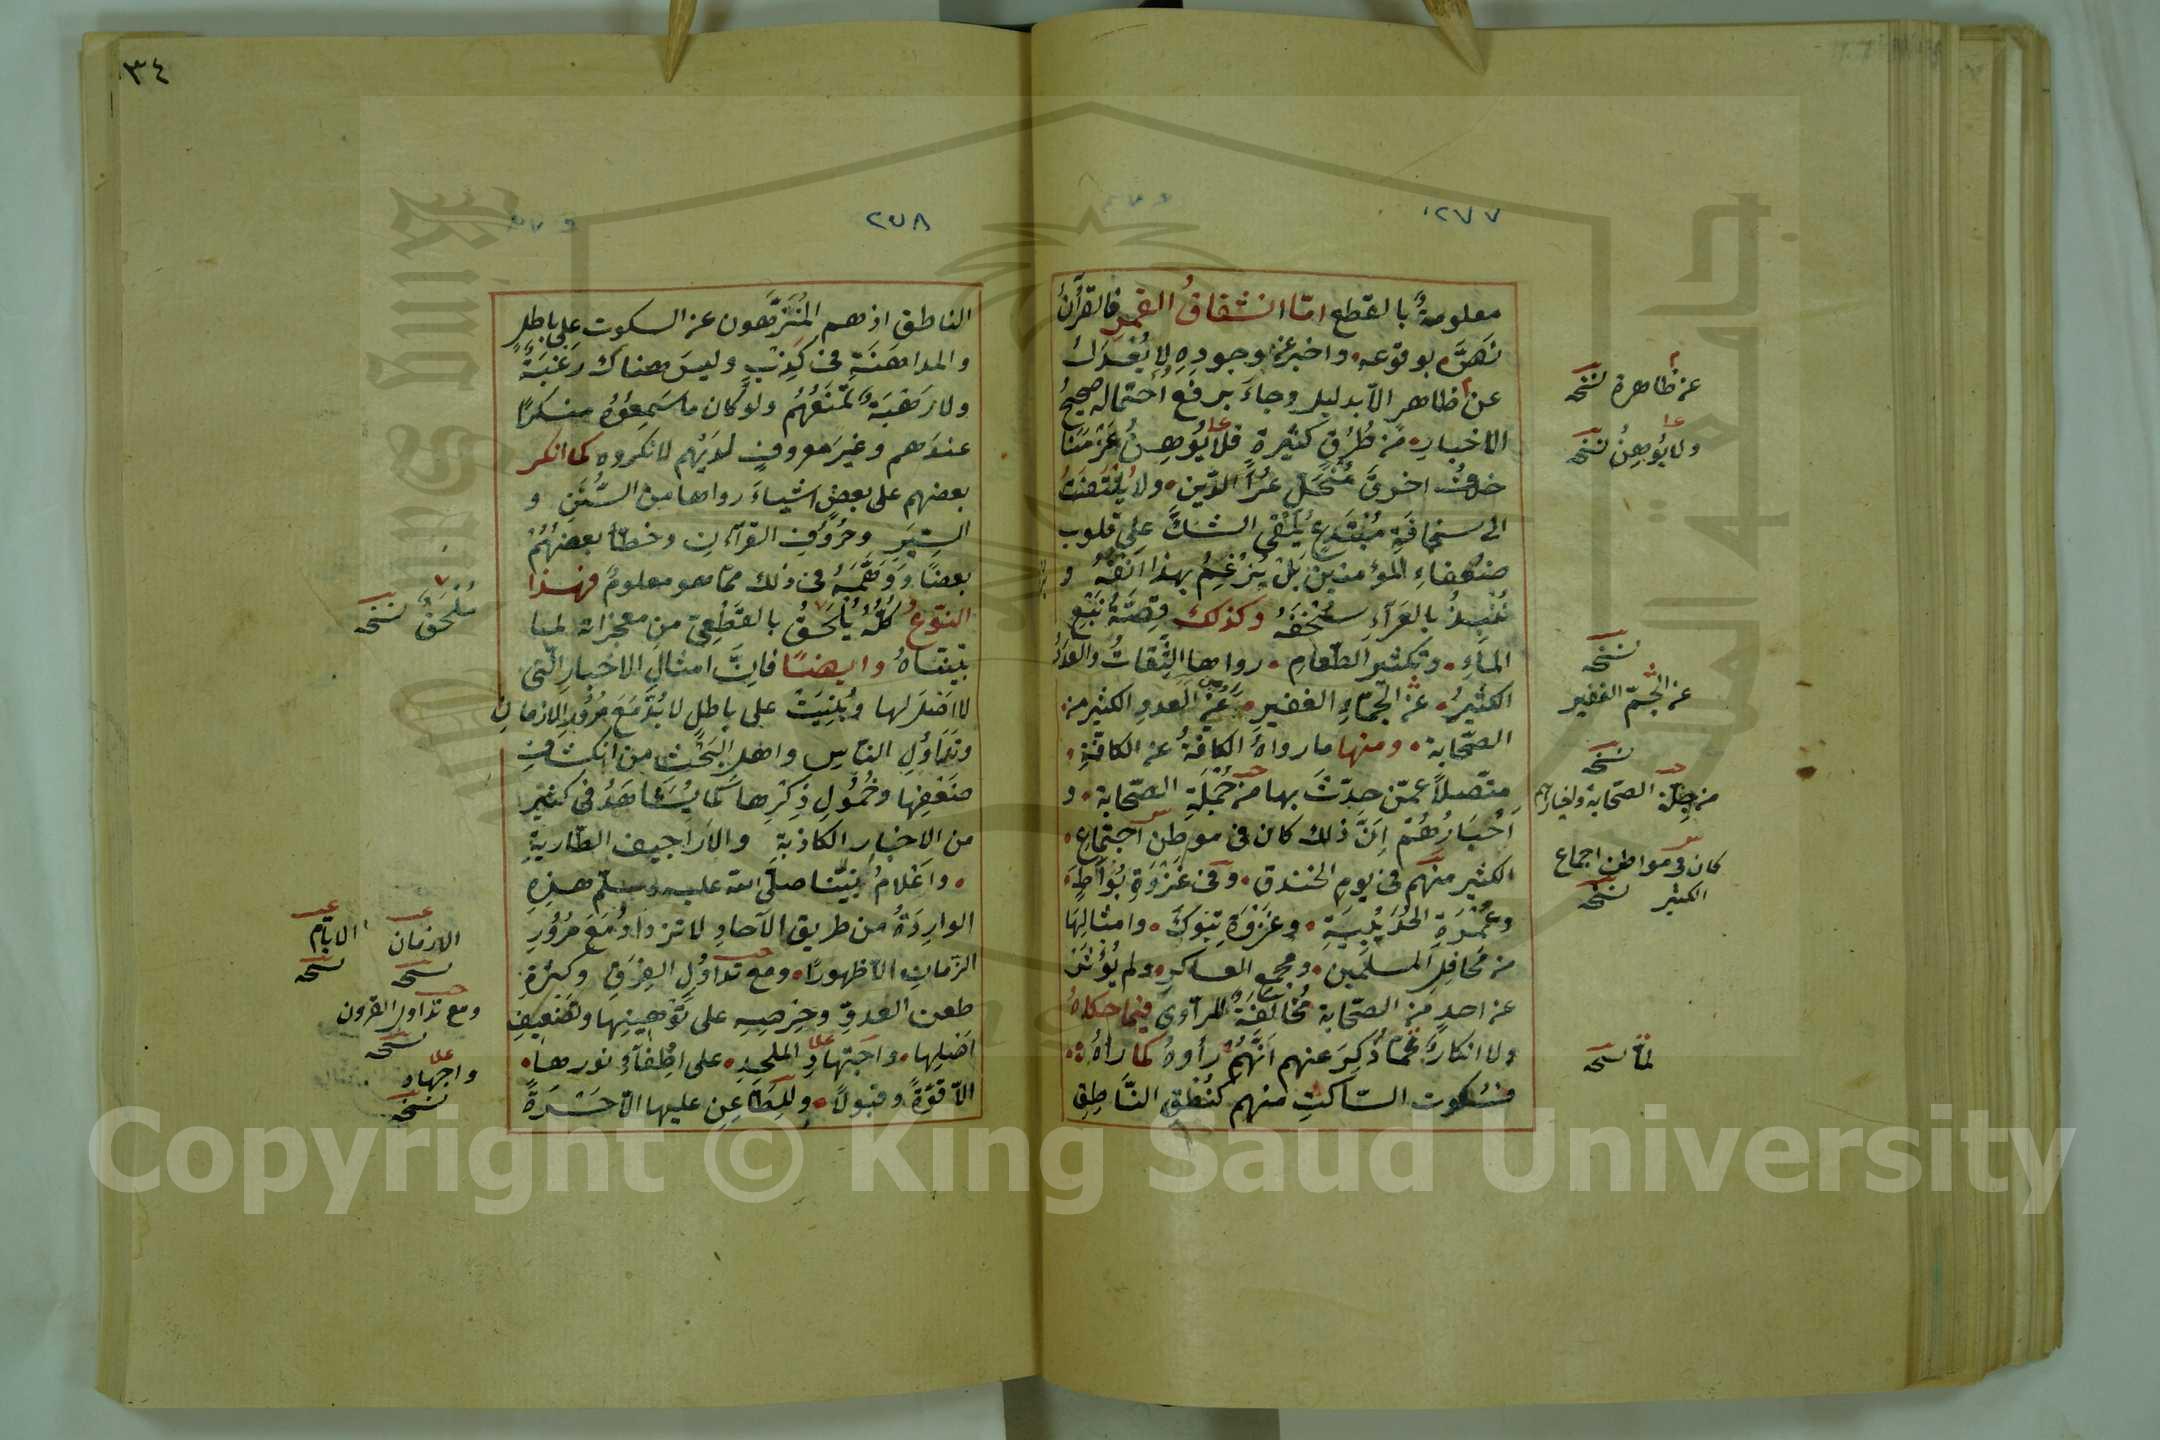 ٢٧٧
معلومةٌ بالقطع امّا انشقاقُ القمر فالقرآنُ
نَصَّ بوقوعه، واخبر عن وجودِهِ لا يُعْدَلُ
عن ظاهر الّا بدليل وجاءَ برفع احتماله صحيحُ
الاخبارِ من طُرُقٍ كثيرةٍ فلا يُوهِنُ عَزْمَنَا
خلافُ اخرقَ مُنْحَلِّ عُرَا الدّين ولا يُلْتَفَتُ
الى سخافَةِ مُبْتَدِعٍ يُلْقِى الشكَّ على قلوب
ضعفاءِ المؤمنين بَلْ يُرْغِمُ بهذا انفَهُ و
نُنْبِذُ بالعَرآءِ سُخْفَهُ وكذلك قِصَّةُ نَبْعِ
المآءِ وتكثيرِ الطّعامِ رواها الثِّقاتُ والعدَدُ
الكثيرُ عن الجمّاءِ الغفيرِ عن العددِ الكثيرِ من
الصّحابة ومنها ما رواهُ الكافّةُ عن الكافّةِ
متّصلاً عمّن حدّثَ بها من جُمْلَةِ الصّحابة و
اَخْبَارُهُمْ اِنَّ ذلك كان فى موطِنِ اجتماعِ
الكثير منهم فى يومِ الخندق وفى غَزْوَةِ بُوَاطٍ
وعُمْرَةِ الحُدَيْبِيَةِ وغَزْوَةِ تَبُوكَ وامثالِهَا
من مَحَافِلِ المسلمين ومجمع العساكر ولم يُؤْثَرْ
عن احدٍ من الصّحابة مُخَالَفَةٌ للرّاوى فيما حكاهُ
ولا انكارٌ عمّا ذُكِرَ عنهم اَنَّهُمْ رأوهُ كما رآهُ
فسُكوت السّاكتِ منهم كنُطْقِ النَّاطِقِ
عن ظاهرة نسخه
ولا يُوهِنُ نسخه
نسخه
عن الجمّ الغفير
نسخه
من جِلّة الصّحابة واخبارهم
كان فى مواطن اجماع
الكثير نسخه
لما نسخه
٣٤
٢٧٨
الناطق اذ هم المُنَزَّهون عن السكوت على باطِلٍ
والمداهَنَةِ فى كَذِبٍ وليسَ هناك رَغبَةٌ
ولا رَهْبَةٌ تَمْنَعُهُم ولو كان ما سَمِعُوهُ منكرًا
عندَهم وغيرَ معروفٍ لدَيْهم لانكروه كما انكر
بعضهم على بعضٍ اشياءَ رواها من السُّنَنِ و
السِّيَرِ وحُرُوفِ القرآنِ وخطّأ بعضُهُمْ
بعضًا ووَهَّمَهُ فى ذلك ممّا هو معلومٌ فهذا
النّوعُ كُلُّهُ يُلْحَقُ بالقَطْعِىّ من معجزاته لما
بيّنّاهُ وايضًا فانَّ امثال الاخبارِ الّتى
لا اصْلَ لها وبُنِيَتْ على باطلٍ لا بُدَّ مَعَ مُرُورِ الازمانِ
وتَدَاوُلِ النّاسِ واهلِ البَحْث من انكشافِ
ضَعْفِها وخُمُولِ ذِكْرِها كما يُشاهَدُ فى كثيرٍ
من الاخبارِ الكاذبةِ والاَراجيف الطّاريةِ
واَعْلامُ نبيّنا صلّى الله عليه وسلّم هذِهِ
الوارِدَةُ من طريق الآحادِ لا تزدادُ مَعَ مُرُورِ
الزّمانِ الّا ظهورًا ومع تداوُلِ الفِرَقِ وكثرةِ
طعن العدوّ وحِرصِهِ على تَوْهِينِها وتَضْعِيفِ
اَصْلِها واجتهادِ الملحِدِ على اِطْفآءِ نورها
الّا قوّةً وقبولاً وللطّاعِنِ عليها الّا حَسْرَةً
مُلْحَقٌ نسخه
الازمان نسخه
الايّام نسخه
ومع تداول القرون
نسخه
واجهاد
نسخه
Copyright © King Saud University